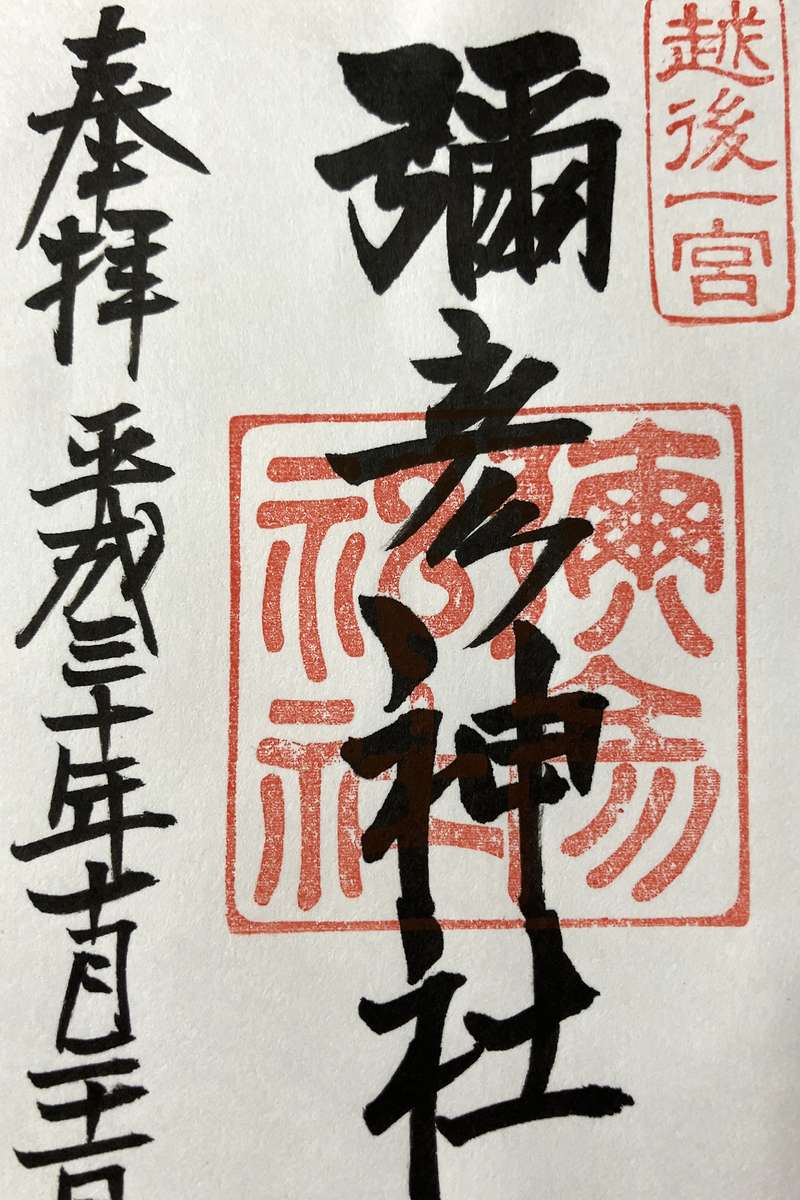 越後一宮
彌彦神社
彌彦
神社
奉拝 平成三十年十月二十一日